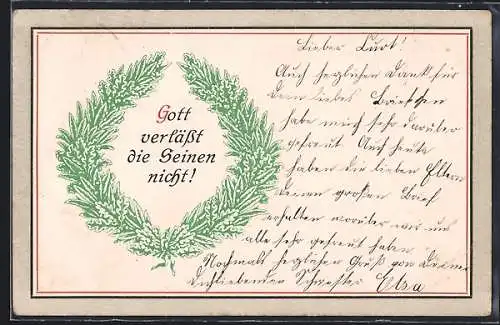 Gott
verläßt
die Seinen
nicht!
Lieber Kurt!
Auch herzlichen Dank für
Dein liebes Briefchen
habe mich sehr darüber
gefreut. Auch heute
haben die lieben Eltern
Deinen großen Brief
erhalten worüber wir uns
alle sehr gefreut haben
Nochmals herzlichen Gruß von Deiner
Dichliebenden Schwester Elsa